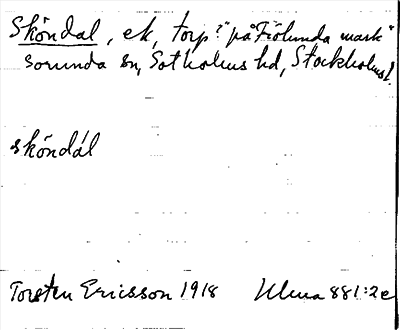 Sköndal, ek, torp? "på Fiölunda mark"
Sorunda sn, Sotholms hd, Stockholms l.
sköndál
Torsten Ericsson 1918 Ulma 881:2c